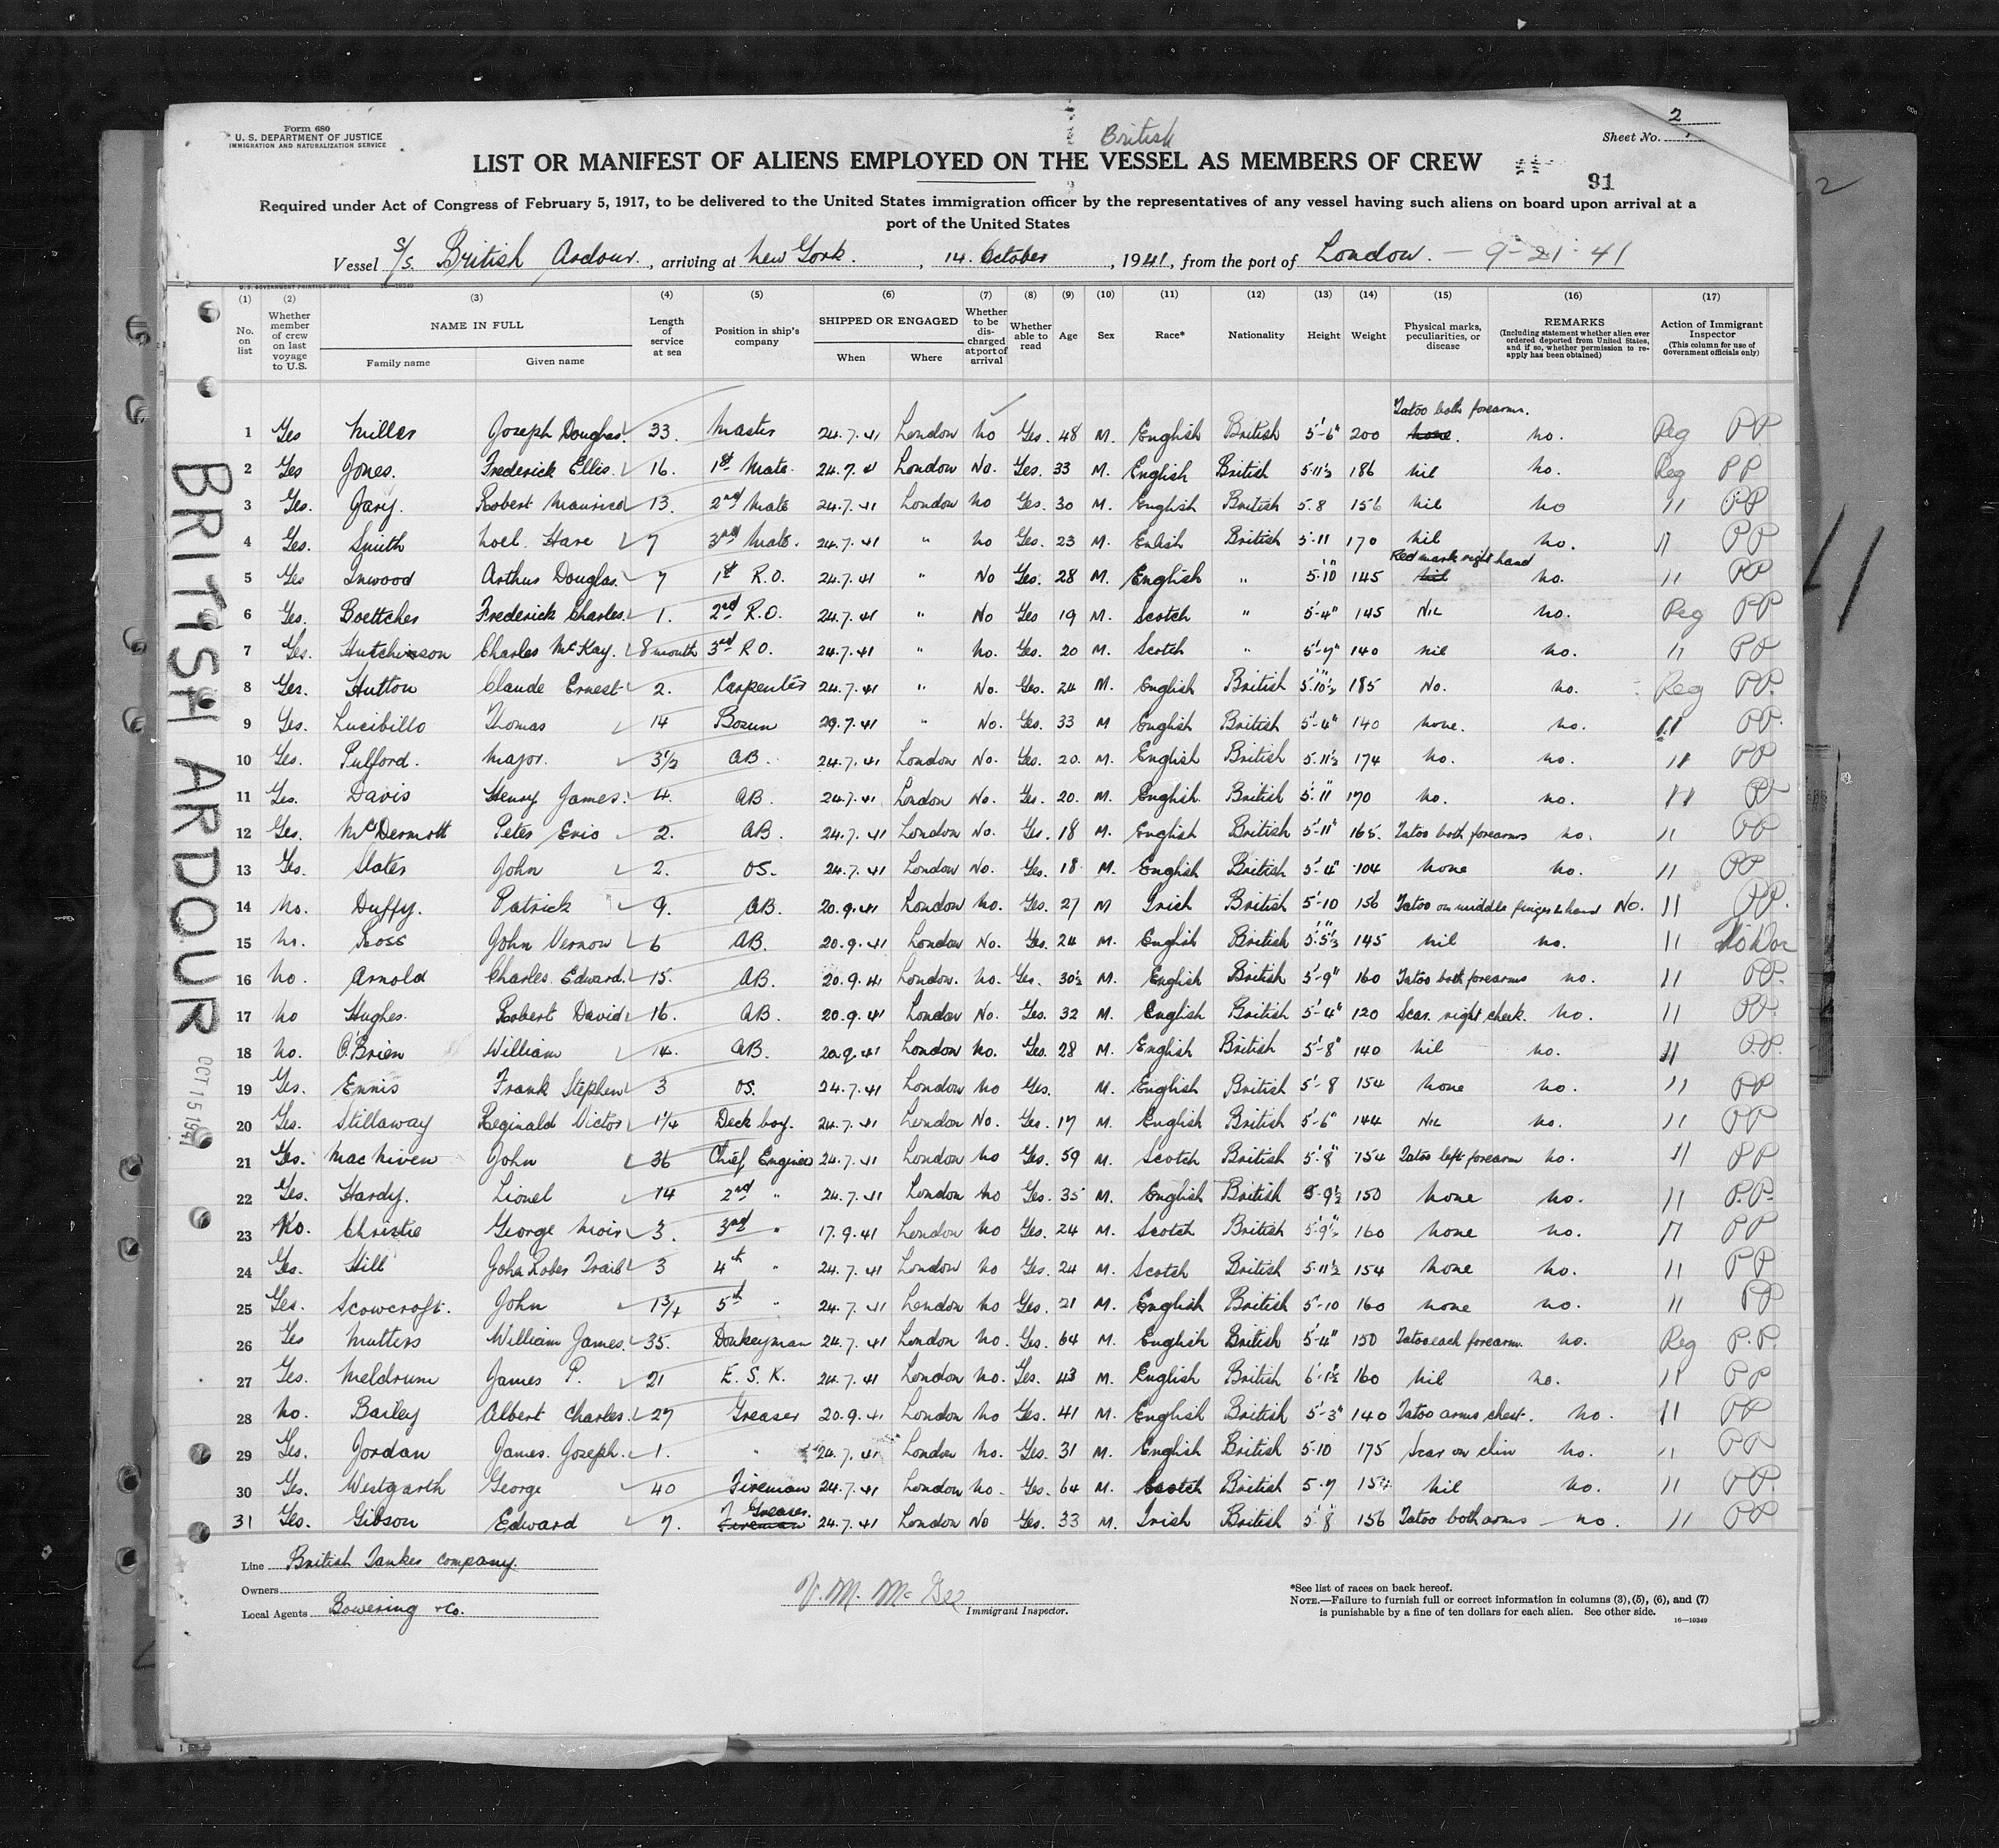 Form 680
U. S. DEPARTMENT OF JUSTICE
IMMIGRATION AND NATURALIZATION SERVICE
2
Sheet No.
British
LIST OR MANIFEST OF ALIENS EMPLOYED ON THE VESSEL AS MEMBERS OF CREW
91
Required under Act of Congress of February 5, 1917, to be delivered to the United States immigration officer by the representatives of any vessel having such aliens on board upon arrival at a
port of the United States
Vessel S/S. British Ardour, arriving at New York, 14 October, 1941, from the port of London. - 9-21-41
U. S. GOVERNMENT PRINTING OFFICE 16-19349
(1) (2) (3) (4) (5) (6) (7) (8) (9) (10) (11) (12) (13) (14) (15) (16) (17)
No. on list Whether member of crew on last voyage to U.S. NAME IN FULL Family name Given name Length of service at sea Position in ship's company SHIPPED OR ENGAGED When Where Whether to be discharged at port of arrival Whether able to read Age Sex Race* Nationality Height Weight Physical marks, peculiarities, or disease REMARKS (Including statement whether alien ever ordered deported from United States, and if so, whether permission to reapply has been obtained) Action of Immigrant Inspector (This column for use of Government officials only)
Tatoo both forearms.
1 Yes Miller Joseph Douglas. 33. Master 24.7.41 London No Yes. 48 M. English British 5'-6" 200 none. no. Reg PP
2 Yes Jones. Frederick Ellis. 16. 1st Mate. 24.7.41 London No. Yes. 33 M. English British 5.11½ 186 nil no. Reg PP
3 Yes. Jary. Robert Maurice 13. 2nd Mate 24.7.41 London no Yes. 30 M. English British 5.8 156 nil no 11 PP
4 Yes. Smith Noel Hare 7 3rd Mate. 24.7.41 " no Yes. 23 M. Enlish British 5.11 170 nil no. 11 PP
Red mark right hand
5 Yes Inwood Arthur Douglas. 7 1st R.O. 24.7.41 " No Yes. 28 M. English " 5'.10" 145 nil no. 11 PP
6 Yes. Boettcher Frederick Charles. 1. 2nd R.O. 24.7.41 " No Yes 19 M. Scotch " 5'-4" 145 NIL no. Reg PP
7 Yes. Hutchinson Charles McKay. 8 month 3rd R.O. 24.7.41 " no. Yes. 20 M. Scotch " 5'-7" 140 nil no. 11 PP
8 Yes. Hutton Claude Ernest 2. Carpenter 24.7.41 " No. Yes. 24 M. English British 5'.10½" 185 No. no. Reg PP.
9 Yes. Lucibillo Thomas 14 Bosun 29.7.41 " No. Yes. 33 M English British 5'-4" 140 none. no. 11 PP.
10 Yes. Pulford. Major. 3½ AB. 24.7.41 London No. Yes. 20. M. English British 5.11½ 174 no. no. 11 PP
11 Yes. Davis Henry James. 4. AB. 24.7.41 London No. Yes. 20. M. English British 5'.11" 170 no. no. 11 PP
12 Yes. McDermott Peter Eric 2. AB. 24.7.41 London No. Yes. 18 M. English British 5'-11" 165. Tatoo both forearms no. 11 PP
13 Yes. Slater John 2. OS. 24.7.41 London No. Yes. 18 M. English British 5'-4" 104 none no. 11 PP
14 No. Duffy. Patrick 9. AB. 20.9.41 London no. Yes. 27 M Irish British 5'-10 156 Tatoo on middle finger L hand No. 11 PP.
15 No. Ross John Vernon 6 AB. 20.9.41 London No. Yes. 24 M. English British 5'.5½" 145 nil no. 11 No Doc
16 No. Arnold Charles Edward. 15. AB. 20.9.41 London. no. Yes. 30½ M. English British 5'-9" 160 Tatoo both forearms no. 11 PP.
17 No Hughes. Robert David. 16. AB. 20.9.41 London No. Yes. 32 M. English British 5'-4" 120 Scar. right cheek. no. 11 PP.
18 No. O'Brien William 14. AB. 20.9.41 London no. Yes. 28 M. English British 5'-8" 140 nil no. 11 P.P.
19 Yes. Ennis Frank Stephen 3 OS. 24.7.41 London no Yes. M. English British 5'-8 154 none no. 11 PP
20 Yes. Stillaway Reginald Victor 1¼ Deck boy. 24.7.41 London No. Yes. 17 M. English British 5'-6" 144 NIL no. 11 PP
21 Yes. MacNiven John 36 Chief Engineer 24.7.41 London no Yes. 59 M. Scotch British 5'.8" 154 Tatoo left forearm no. 11 PP
22 Yes. Hardy. Lionel 14 2nd " 24.7.41 London no Yes. 35 M. English British 5-9½ 150 none no. 11 P.P.
23 No. Christie George Moir 3. 3rd " 17.9.41 London no Yes. 24 M. Scotch British 5'-9½" 160 none no. 11 PP
24 Yes. Hill 3 4th " 24.7.41 London no Yes. 24 M. Scotch British 5.11½ 154 none no. 11 PP
25 Yes. Scowcroft. John 1¾ 5th " 24.7.41 London no Yes. 21 M. English British 5'-10 160 none no. 11 PP
26 Yes Mutters William James. 35. Donkeyman 24.7.41 London no. Yes. 64 M. English British 5'-4" 150 Tatoo each forearm. no. Reg P.P.
27 Yes. Meldrum James P. 21 E. S. K. 24.7.41 London no. Yes. 43 M. English British 6'-1½ 160 nil no. 11 PP
28 No. Bailey Albert Charles. 27 Greaser 20.9.41 London no Yes. 41 M. English British 5'-3" 140 Tatoo arms chest. no. 11 PP
29 Yes. Jordan James. Joseph. 1. " 24.7.41 London no. Yes. 31 M. English British 5.10 175 Scar on chin no. 11 PP
30 Yes. Westgarth George 40 Fireman 24.7.41 London no. Yes. 64 M. Scotch British 5.7 154 nil no. 11 PP.
Greaser.
31 Yes. Gibson Edward 7. Fireman 24.7.41 London No Yes. 33 M. Irish British 5'8" 156 Tatoo both arms - no. 11 PP
BRITISH ARDOUR
OCT 15 1941
Line British Tanker Company.
Owners
Local Agents Bowering & Co.
V. M. McGee
Immigrant Inspector.
*See list of races on back hereof.
NOTE.—Failure to furnish full or correct information in columns (3), (5), (6), and (7)
is punishable by a fine of ten dollars for each alien. See other side.
16—19349